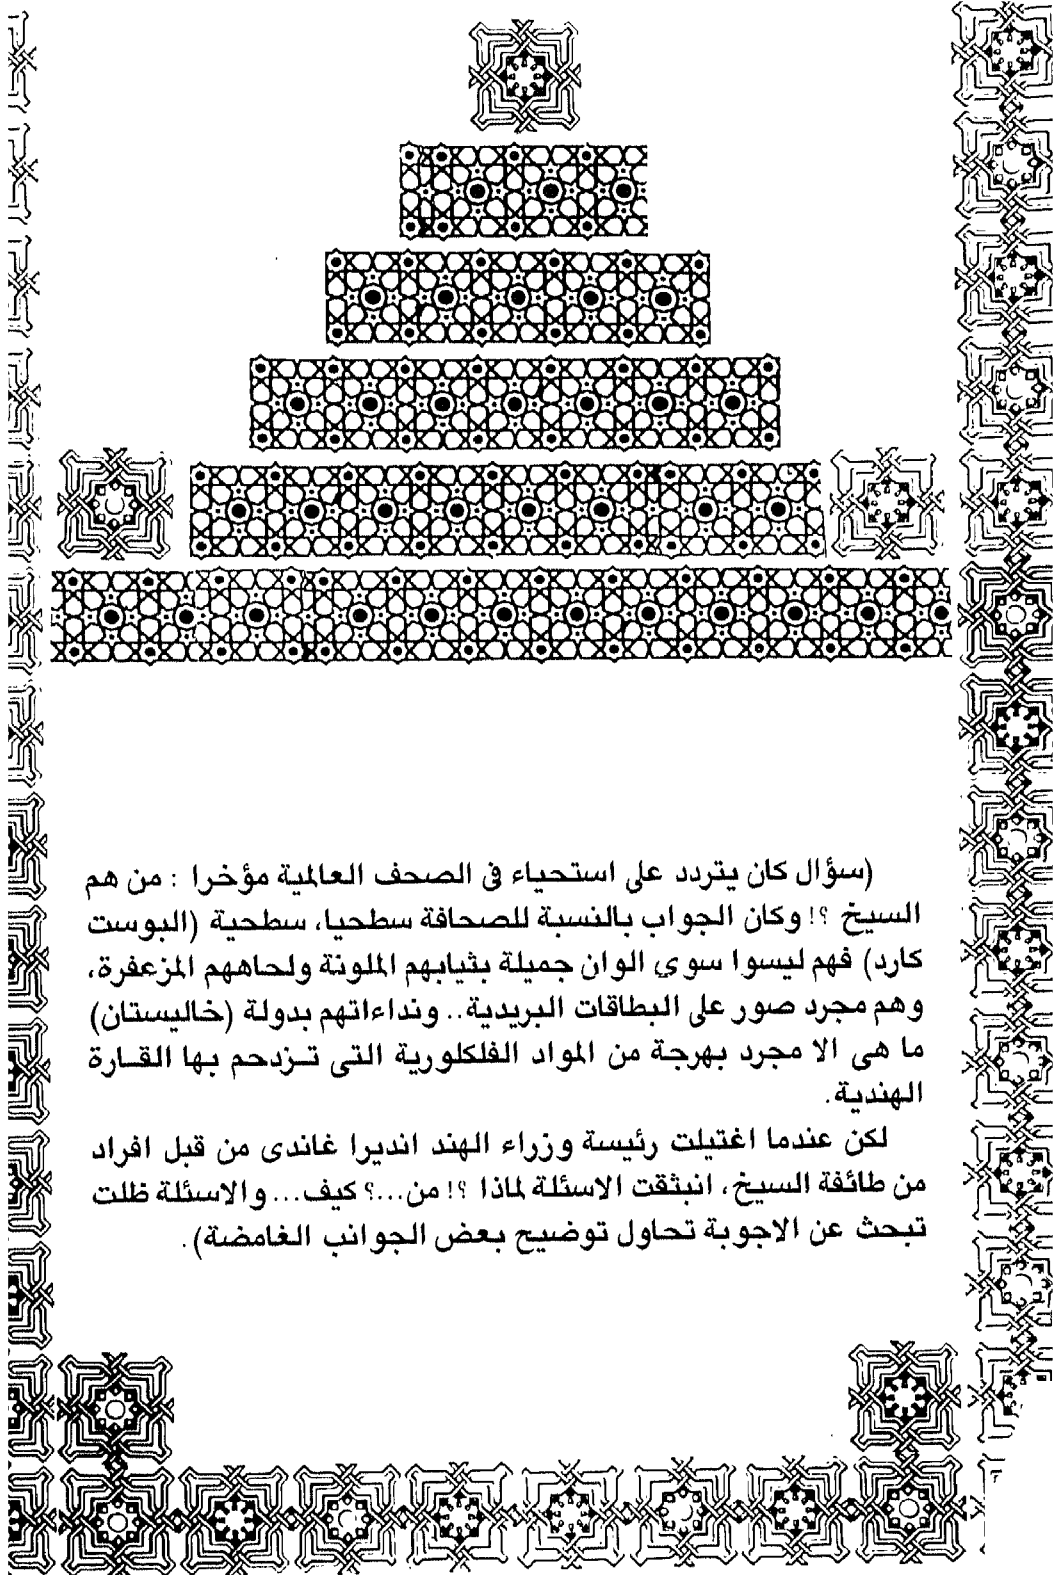 (سؤال كان يتردد على استحياء فى الصحف العالمية مؤخرا : من هم
السيخ ؟! وكان الجواب بالنسبة للصحافة سطحيا، سطحية (البوست
كارد) فهم ليسوا سوى الوان جميلة بثيابهم الملونة ولحاهم المزعفرة،
وهم مجرد صور على البطاقات البريدية.. ونداءاتهم بدولة (خاليستان)
ما هى الا مجرد بهرجة من المواد الفلكلورية التى تـزدحم بها القـارة
الهندية.
لكن عندما اغتيلت رئيسة وزراء الهند انديرا غاندى من قبل افراد
من طائفة السيخ، انبثقت الاسئلة لماذا ؟! من...؟ كيف... والاسئلة ظلت
تبحث عن الاجوبة تحاول توضيح بعض الجوانب الغامضة).